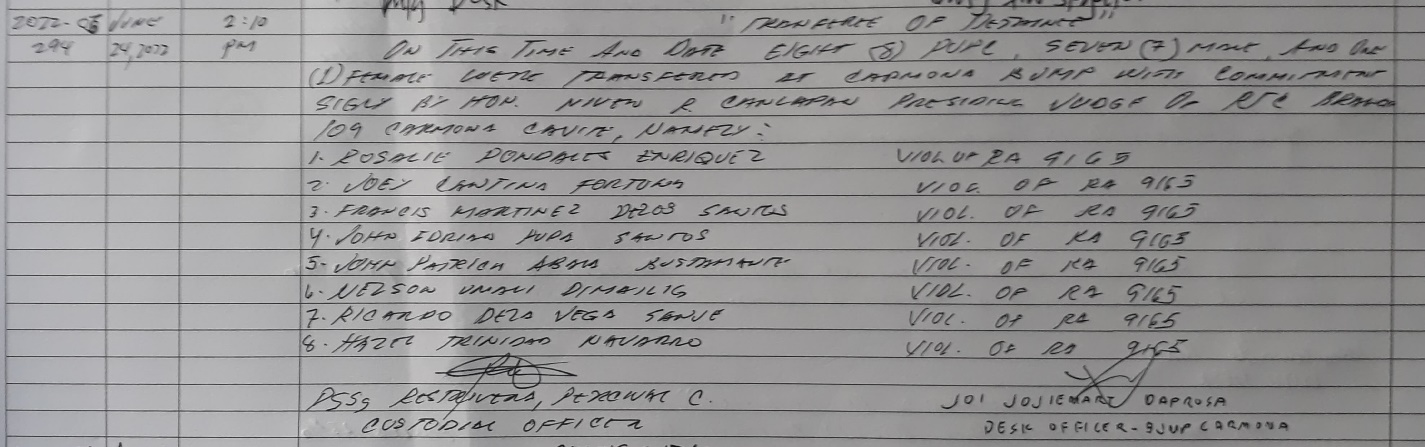 Desk
2022-05 JUNE 2:10 "TRANSFEREE OF DETAINEE"
294 24,2022 PM ON THIS TIME AND DATE EIGHT (8) PUPC, SEVEN (7) MALE, AND ONE
(1) FEMALE WERE TRANSFERED AT CARMONA BJMP WITH COMMITMENT
SIGN BY HON. NIVEN R CANLAPAN PRESIDING JUDGE OF RTC BRANCH
109 CARMONA CAVITE, NAMELY:
1. ROSALIE DONDALES ENRIQUEZ VIOL OF RA 9165
2. JOEY CANTINA FORTUNA VIOL. OF RA 9165
3. FRANCIS MARTINEZ DELOS SANTOS VIOL. OF RA 9165
4. JOHN PUPA SANTOS VIOL. OF RA 9165
5. JOHN PATRICK ABAD BUSTAMANTE VIOL. OF RA 9165
6. NELSON UMALI DIMAILIG VIOL. OF RA 9165
7. RICARDO DELA VEGA SANJE VIOL. OF RA 9165
8. HAZEL TRINIDAD NAVARRO VIOL. OF RA 9165
PSSg PERCIVAL C. JO1 JOJIEMART DAPROSA
CUSTODIAL OFFICER DESK OFFICER - BJMP CARMONA